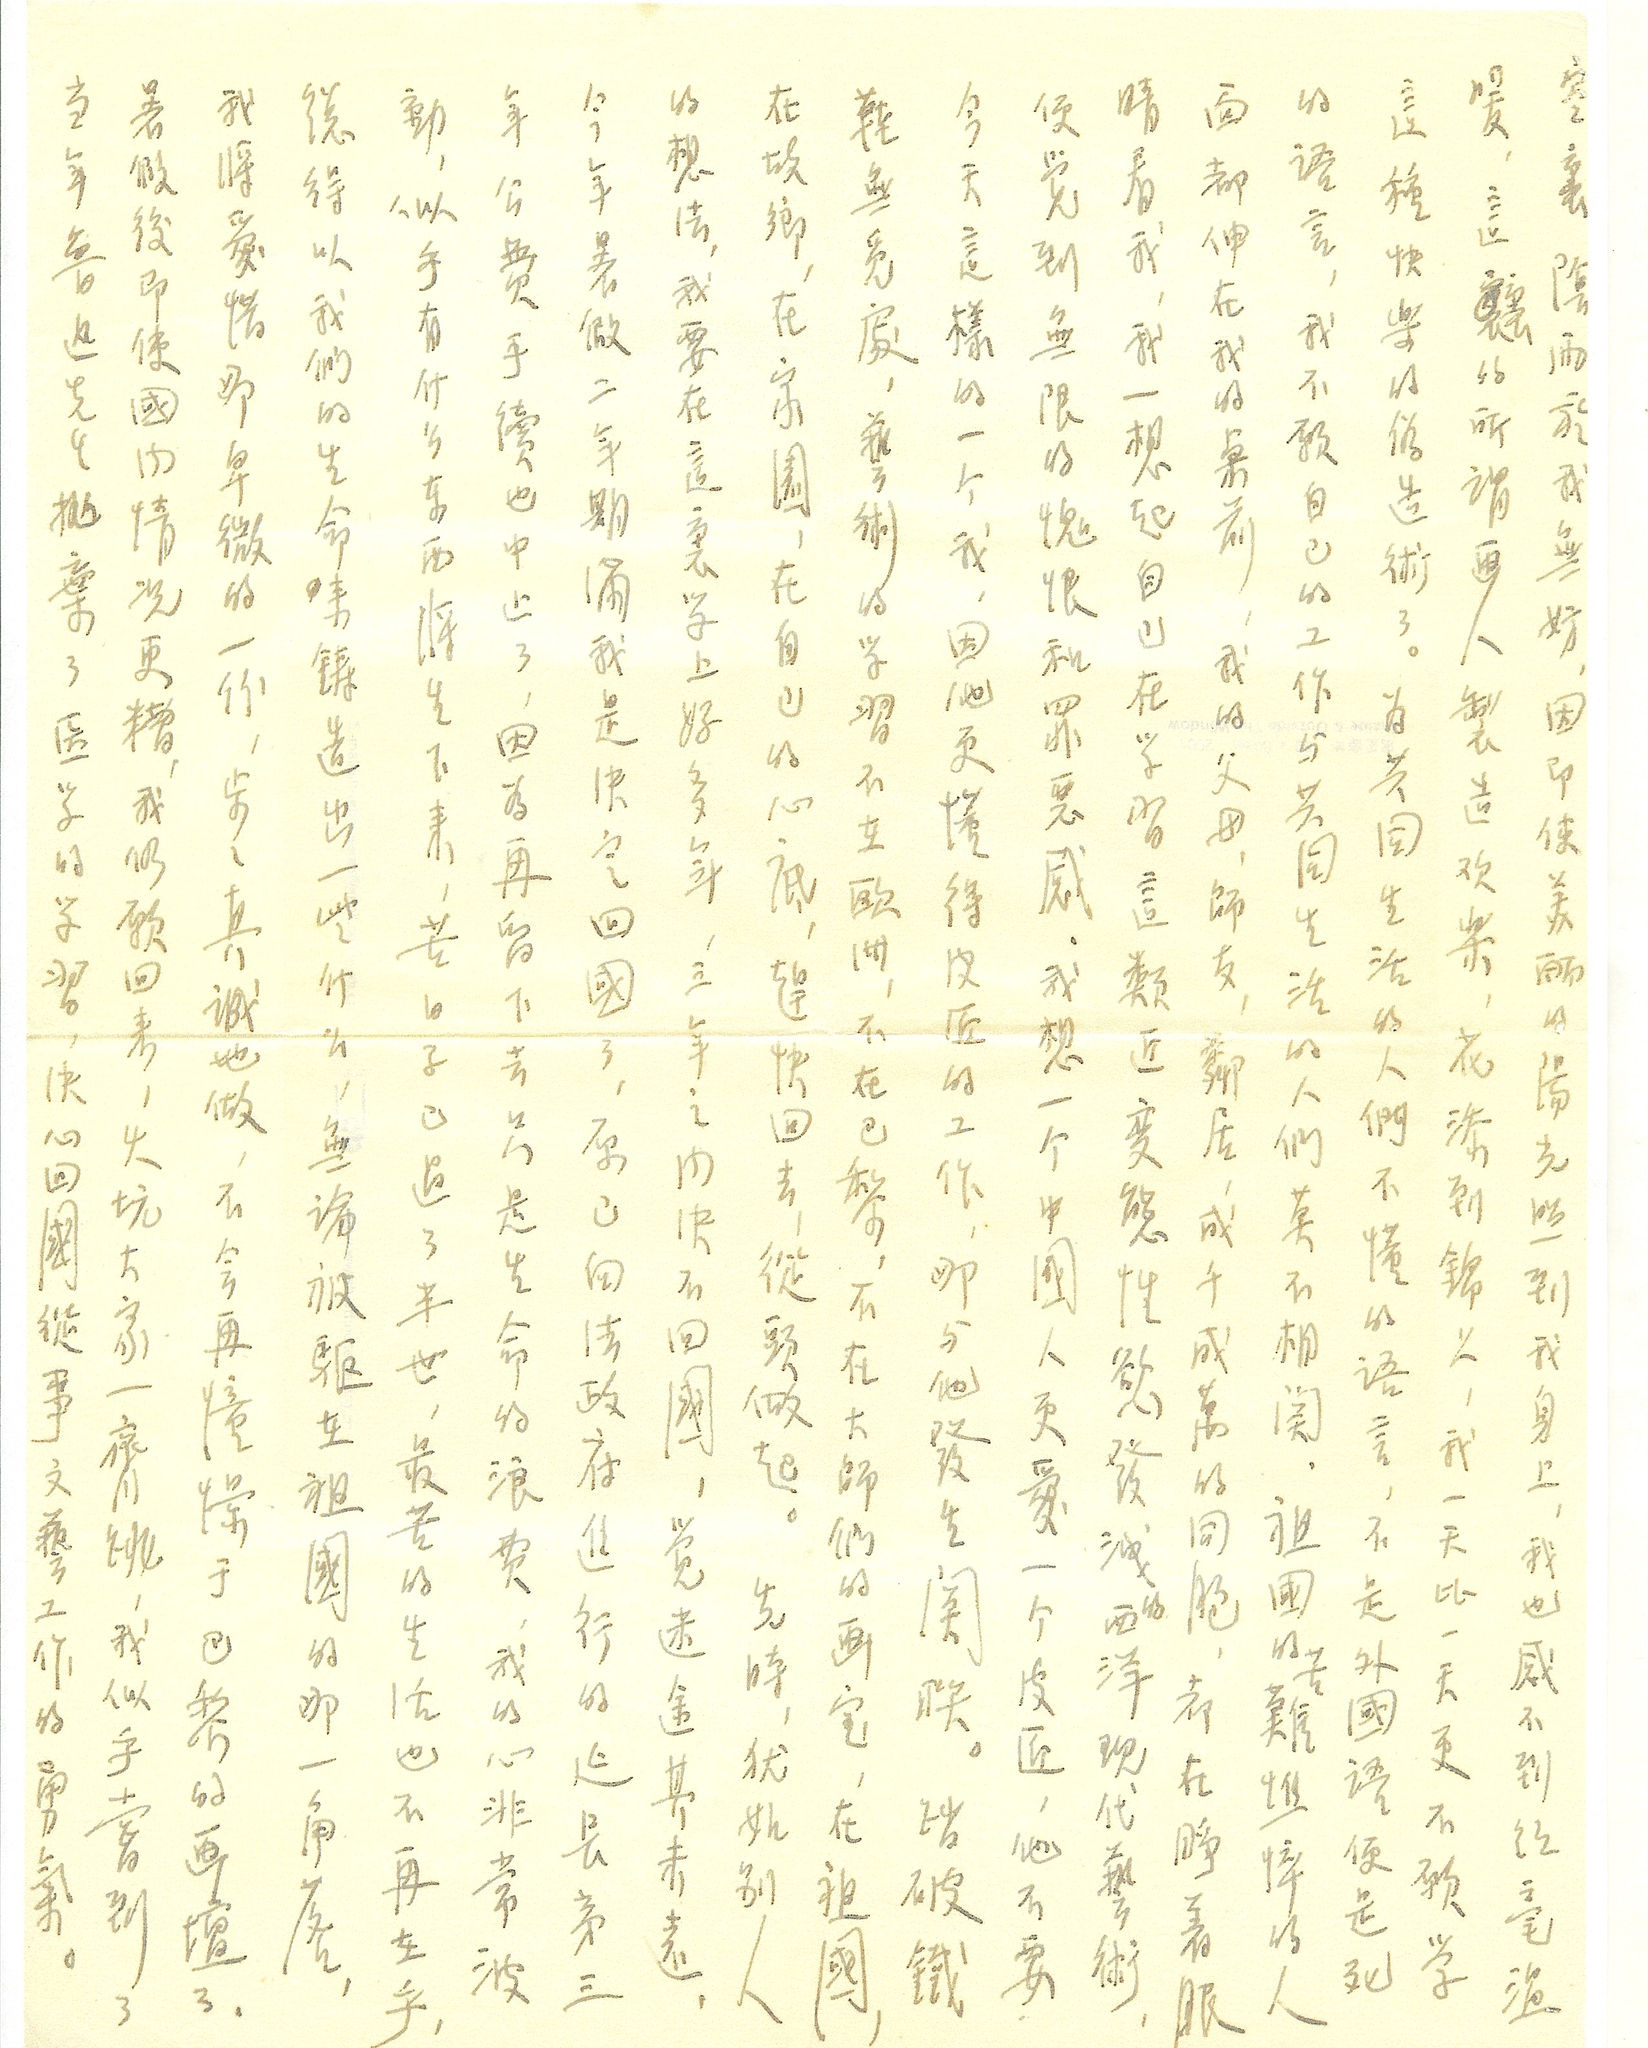 空裏陰雨於我無妨，因即使美丽的陽光照到我身上，我也感不到絲毫温
暖，這裏的所謂画人製造欢樂，花添到錦上，我一天比一天更不願学
這種快樂的偽造術了。为共同生活的人們不懂的語言，不是外國語便是死
的語言，我不願自己的工作与共同生活的人們莫不相関．祖國的苦難憔悴的人
面都伸在我的桌前，我的父母，師友，鄰居，成千成萬的同胞，都在睁着眼
睛看我，我一想起自己在学習這類近變態性慾發洩的西洋現代藝術，
便覚到無限的愧恨和罪惡感．我想一个中國人更愛一个皮匠，他不要
今天這樣的一个我，因他更懂得皮匠的工作，那与他發生関联。踏破鐵
鞋無覓處，藝術的学習不在歐洲，不在巴黎，不在大師們的画室，在祖國，
在故鄉，在家園，在自己的心底，趕快回去，從頭做起。先時，犹如别人
的想法，我要在這裏学上好多年，三年之内决不回國，覚迷途其未遠，
今年暑假二年期滿我是决定回國了，原已向法政府進行的延長第三
年公費手續也中止了，因為再留下去只是生命的浪费，我的心非常波
動，似乎有什么东西將生下来，苦日子已过了半世，最苦的生活也不再在乎，
總得以我們的生命来鑄造出一些什么，無論被驱在祖國的那一角落，
我將爱惜那卑微的一份，步之真誠地做，不会再憧憬于巴黎的画壇了．
暑假後即使國内情况更糟，我仍願回来，火坑大家一齊跳，我似乎嘗到了
当年魯迅先生抛棄了医学的学習，决心回國從事文藝工作的勇氣。